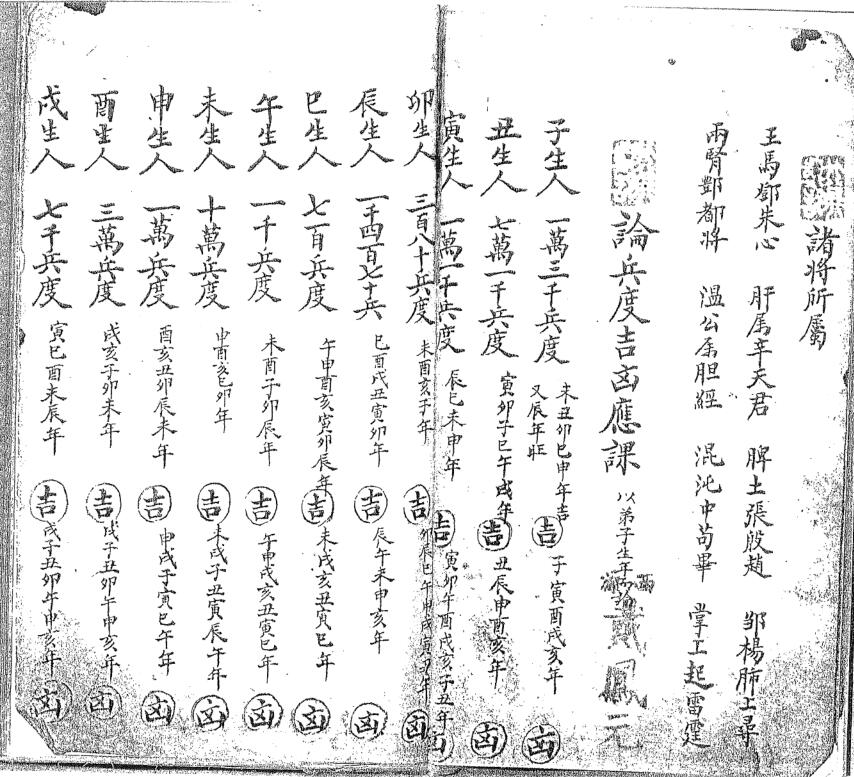 諸將所屬
王馬鄧朱心　肝屬辛天君　脾土張殷趙　鄒楊肺上尋
兩腎酆都將　溫公屬胆經　混沌中苟畢　掌上起雷霆
論兵度吉凶應課　以弟子生年
子生人　一萬三千兵度　未丑卯巳申年吉　又辰年旺　吉　子寅酉戌亥年　凶
丑生人　七萬一千兵度　寅卯子巳午戌年　吉　丑辰申酉亥年　凶
寅生人　一萬一千兵度　辰巳未申年　吉　寅卯午酉戌亥子丑年　凶
卯生人　三百八十兵度　未酉亥子年　吉　卯辰巳午申戌寅丑年　凶
辰生人　一千四百七十兵　巳酉戌丑寅卯年　吉　辰午未申亥年　凶
巳生人　七百兵度　午申酉亥寅卯辰年　吉　未戌亥丑寅巳年　凶
午生人　一千兵度　未酉子卯辰年　吉　午申戌亥丑寅巳年　凶
未生人　十萬兵度　申酉亥巳卯年　吉　未戌子丑寅辰午年　凶
申生人　一萬兵度　酉亥丑卯辰未年　吉　申戌子寅巳午年　凶
酉生人　三萬兵度　戌亥子卯未年　吉　戌子丑卯午申亥年　凶
戌生人　七千兵度　寅巳酉未辰年　吉　戌子丑卯午申亥年　凶